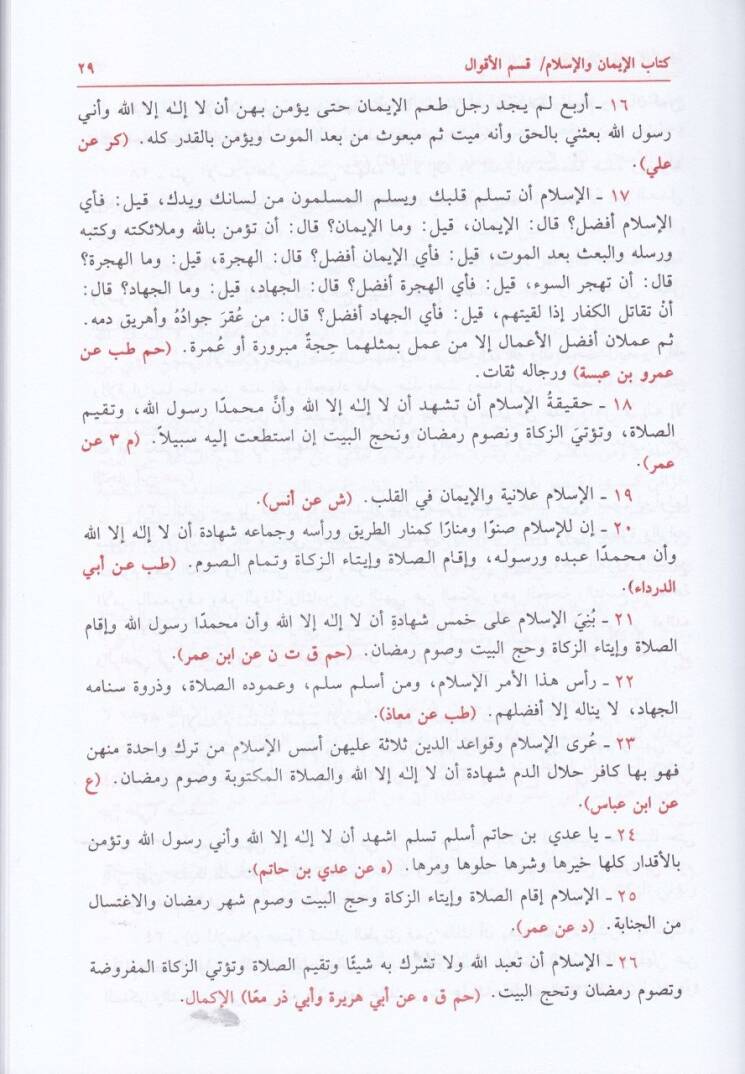 كتاب الإيمان والإسلام/ قسم الأقوال ٢٩
١٦ ـ أربع لم يجد رجل طعم الإيمان حتى يؤمن بهن أن لا إلٰه إلا الله وأني
رسول الله بعثني بالحق وأنه ميت ثم مبعوث من بعد الموت ويؤمن بالقدر كله. (كر عن
علي).
١٧ ـ الإسلام أن تسلم قلبك ويسلم المسلمون من لسانك ويدك، قيل: فأي
الإسلام أفضل؟ قال: الإيمان، قيل: وما الإيمان؟ قال: أن تؤمن بالله وملائكته وكتبه
ورسله والبعث بعد الموت، قيل: فأي الإيمان أفضل؟ قال: الهجرة، قيل: وما الهجرة؟
قال: أن تهجر السوء، قيل: فأي الهجرة أفضل؟ قال: الجهاد، قيل: وما الجهاد؟ قال:
أنْ تقاتل الكفار إذا لقيتهم، قيل: فأي الجهاد أفضل؟ قال: من عُقرَ جوادُهُ وأهريق دمه.
ثم عملان أفضل الأعمال إلا من عمل بمثلهما حجةٌ مبرورة أو عُمرة. (حم طب عن
عمرو بن عبسة) ورجاله ثقات.
١٨ ـ حقيقةُ الإسلام أن تشهد أن لا إلٰه إلا الله وأنَّ محمدًا رسول الله، وتقيم
الصلاة، وتؤتيَ الزكاة ونصوم رمضان ونحج البيت إن استطعت إليه سبيلاً. (م ٣ عن
عمر).
١٩ ـ الإسلام علانية والإيمان في القلب. (ش عن أنس).
٢٠ ـ إن للإسلام صنوًا ومنارًا كمنار الطريق ورأسه وجماعه شهادة أن لا إلٰه إلا الله
وأن محمدًا عبده ورسوله، وإقام الصلاة وإيتاء الزكاة وتمام الصوم. (طب عن أبي
الدرداء).
٢١ ـ بُنِيَ الإسلام على خمس شهادةِ أن لا إلٰه إلا الله وأن محمدًا رسول الله وإقام
الصلاة وإيتاء الزكاة وحج البيت وصوم رمضان. (حم ق ت ن عن ابن عمر).
٢٢ ـ رأس هذا الأمر الإسلام، ومن أسلم سلم، وعموده الصلاة، وذروة سنامه
الجهاد، لا يناله إلا أفضلهم. (طب عن معاذ).
٢٣ ـ عُرى الإسلام وقواعد الدين ثلاثة عليهن أسس الإسلام من ترك واحدة منهن
فهو بها كافر حلال الدم شهادة أن لا إلٰه إلا الله والصلاة المكتوبة وصوم رمضان. (ع
عن ابن عباس).
٢٤ ـ يا عدي بن حاتم أسلم تسلم اشهد أن لا إلٰه إلا الله وأني رسول الله وتؤمن
بالأقدار كلها خيرها وشرها حلوها ومرها. (ه عن عدي بن حاتم).
٢٥ ـ الإسلام إقام الصلاة وإيتاء الزكاة وحج البيت وصوم شهر رمضان والاغتسال
من الجنابة. (د عن عمر).
٢٦ ـ الإسلام أن تعبد الله ولا تشرك به شيئًا وتقيم الصلاة وتؤتي الزكاة المفروضة
وتصوم رمضان وتحج البيت. (حم ق ه عن أبي هريرة وأبي ذر معًا) الإكمال.